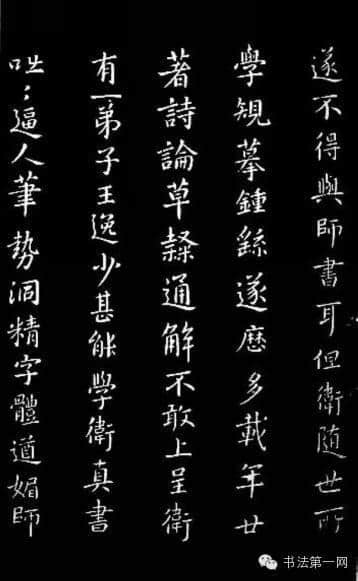 遂不得與師書耳但衛隨世所
學規摹鍾繇遂歷多載年廿
著詩論草隸通解不敢上呈衛
有一弟子王逸少甚能學衛真書
咄〻逼人筆勢洞精字體遒媚師
书法第一网